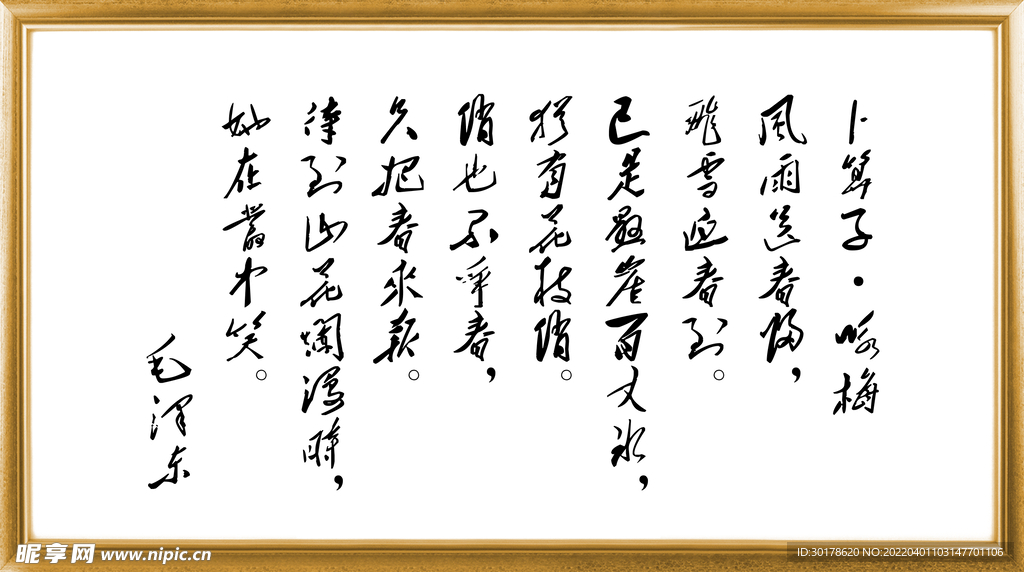 卜算子·咏梅
風雨送春歸，
飛雪迎春到。
已是懸崖百丈冰，
猶有花枝俏。
俏也不爭春，
只把春來報。
待到山花爛漫時，
她在叢中笑。
毛澤东
昵享网 www.nipic.cn
ID:30178620 NO:20220401103147701106